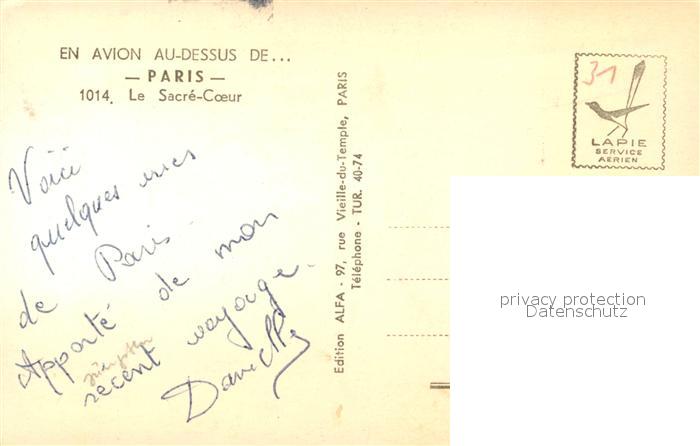 EN AVION AU-DESSUS DE...
— PARIS —
1014. Le Sacré-Cœur
Voici
quelques unes
de Paris
Apporté de mon
récent voyage.
Danielle
Edition ALFA - 97, rue Vieille-du-Temple, PARIS
Téléphone - TUR. 40-74
31
LAPIE
SERVICE
AERIEN
privacy protection
Datenschutz